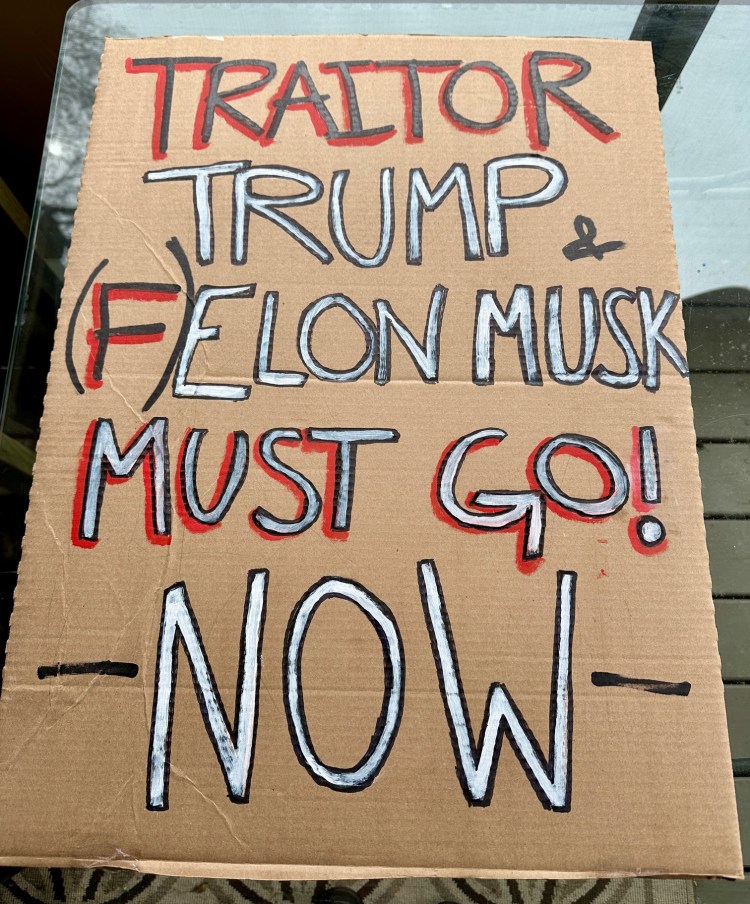 TRAITOR
TRUMP &
(F)ELON MUSK
MUST GO!
- NOW -